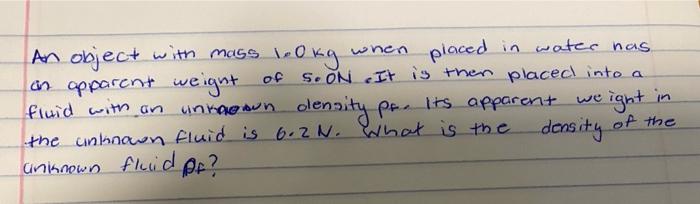 An object with mass 1.0 kg when placed in water has
an apparent weight of 5.0N. It is then placed into a
fluid with an unknown density ρF. Its apparent weight in
the unknown fluid is 6.2 N. What is the density of the
unknown fluid ρF?